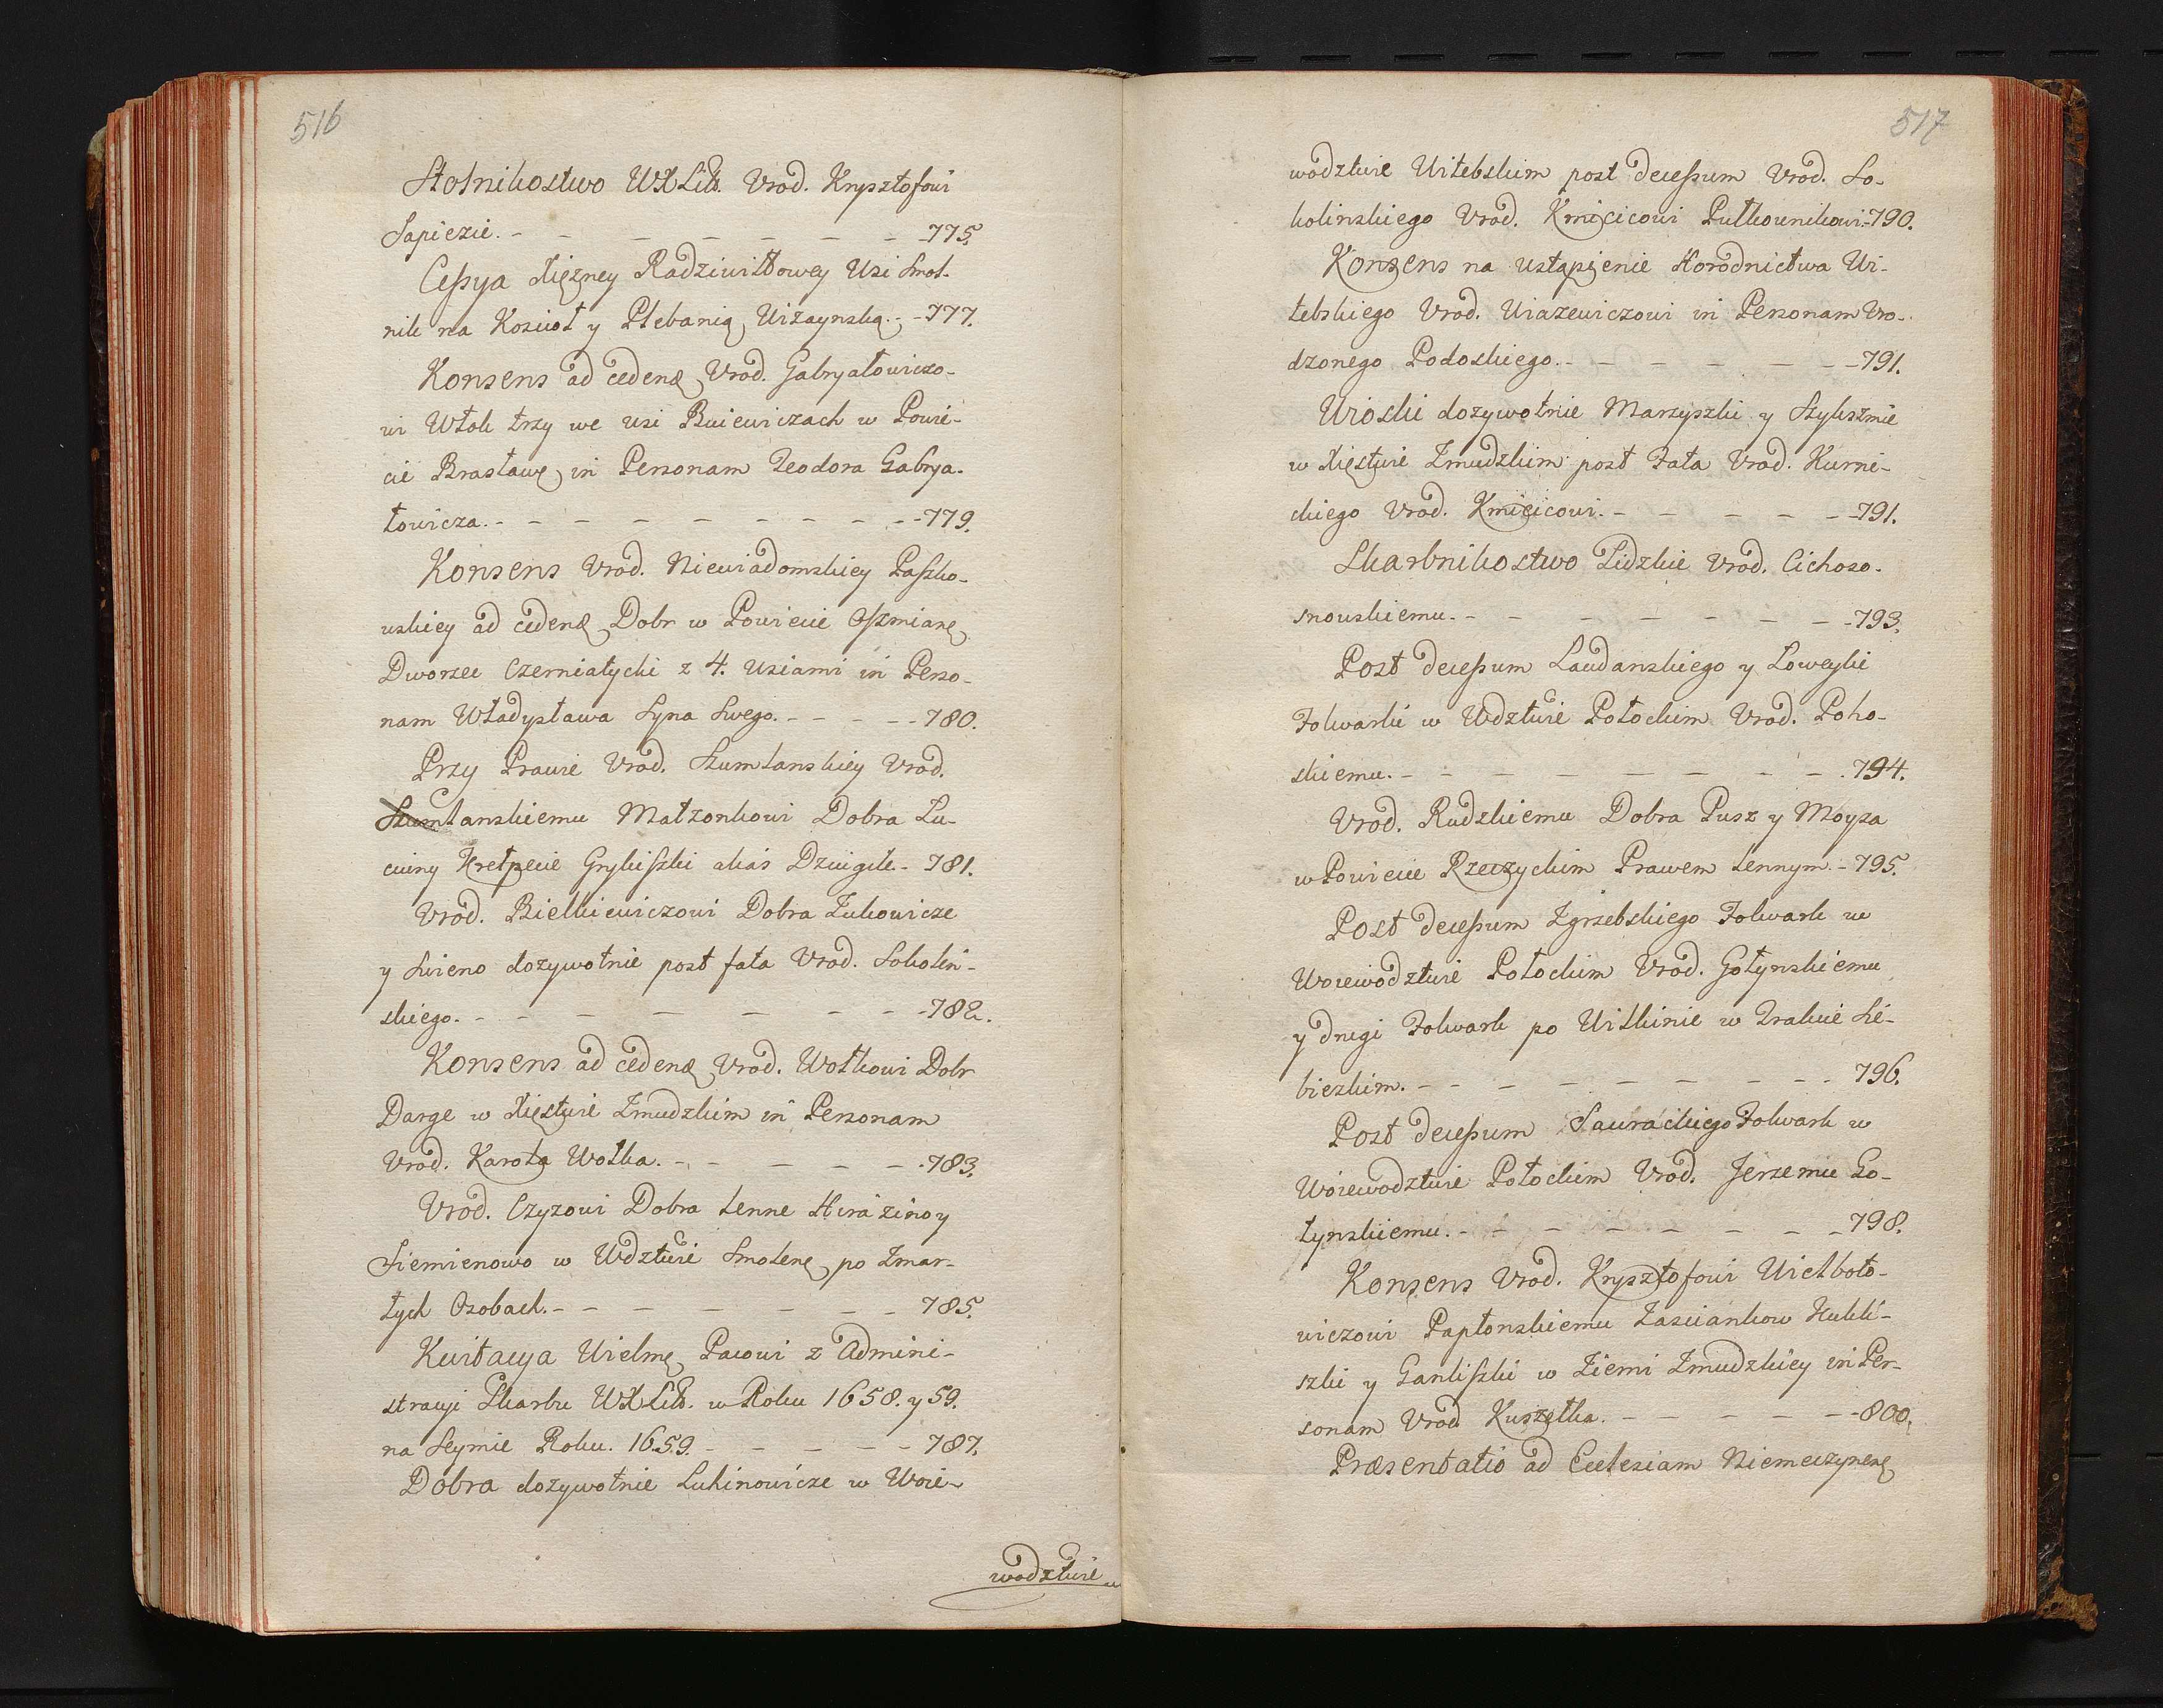 516
Stolnikostwo WXLitt. Vrod. Krysztofowi
Sapiezie. - - - - - - - 775.
Cessya Xiężney Radziwiłłowey Wsi Smol-
nik na Kościoł y Plebanią Wizaynską. - - 777.
Konsens ad cedend Vrod. Gabryałowiczo-
wi Włok trzy we wsi Buiewiczach w Powie-
cie Brasławs in Personam Teodora Gabrya-
łowicza. - - - - - - - - 779.
Konsens Vrod. Niewiadomskiey Paszko-
wskiey ad cedend Dobr w Powiecie Oszmians
Dworzec Czerniatycki z 4. wsiami in Perso-
nam Władysława Syna Swego. - - - - - 780.
Przy Prawie Vrod. Szumlanskiey Vrod.
Szumlanskiemu Małzonkowi Dobra Lu-
Grykiszki alias - 781.
Vrod. Bielkiewiczowi Dobra Żukowicze
y Swieno dozywotnie post fata Vrod. Sokolin-
skiego. - - - - - - - 782.
Konsens ad cedend Vrod. Wolkowi Dobr
Darge w Xięstwie Zmudzkim in Personam
Vrod. Karola Wolka. - - - - - - 783.
Vrod. Czyzowi Dobra Lenne Hirazino y
Siemienowo w Wdztwie Smolens po Zmar-
łych Osobach. - - - - - - - 785.
Kwitacya Wielm Pacowi z Admini-
stracyi Skarbu WXLitt. w Roku 1658. y 59.
na Seymie Roku. 1659. - - - - - 787.
Dobra dozywotnie Lukinowicze w Woie-
wodztwie
517
wodztwie Witebskim post decessum Vrod. So-
kolinskiego Vrod. Kmicicowi Pułkownikowi. - 790.
Konsens na ustąpienie Horodnictwa Wi-
tebskiego Vrod. Wiazewiczowi in Personam Vro-
dzonego Podoskiego. - - - - - - 791.
Wioski dozywotnie Marzyszki y Szyksznie
w Xięstwie Zmudzkim post Fata Vrod. Kurni-
ckiego Vrod. Kmicicowi. - - - - - 791.
Skarbnikostwo Lidzkie Vrod. Cichoso-
snowskiemu. - - - - - - - 793.
Post decessum Laudanskiego y Loweyki
Folwarki w Wdztwie Połockim Vrod. Poho-
skiemu. - - - - - - - - 794.
Vrod. Rudzkiemu Dobra Pusz y Moyza
w Powiecie Rzeczyckim Prawem Lennym. - 795.
Post decessum Zgrzebskiego Folwark w
Woiewodztwie Połockim Vrod. Gołynskiemu
y drugi Folwark po Witkinie w Trakcie Sie-
biezkim. - - - - - - - - 796.
Post decessum Saurackiego Folwark w
Woiewodztwie Połockim Vrod. Jerzemu Go-
łynskiemu. - - - - - - - 798.
Konsens Vrod. Krysztofowi Wiekboło-
wiczowi Papłonskiemu Zasciankow Kukli-
szki y Ganliszki w Ziemi Zmudzkiey in Per-
sonam Vrod Kuszelka. - - - - - 800.
Præsentatio ad Ecclesiam Niemeczynens